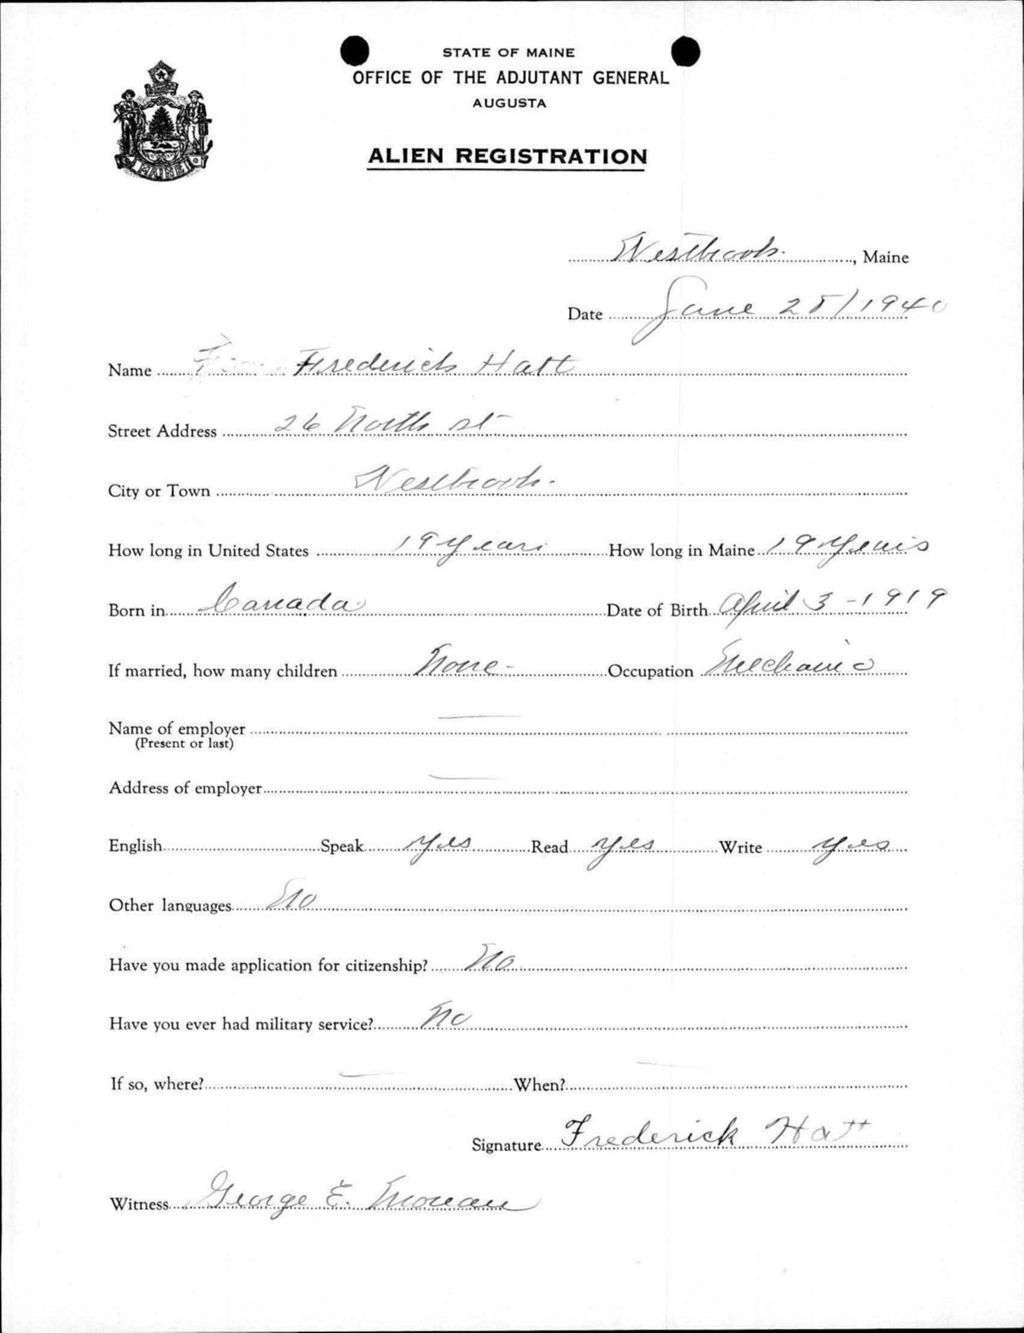 STATE OF MAINE
OFFICE OF THE ADJUTANT GENERAL
AUGUSTA
ALIEN REGISTRATION
MAINE
Westbrook, Maine
Date June 25/1940
Name Frederick Hatt
Street Address 26 North St
City or Town Westbrook.
How long in United States 19 years How long in Maine 19 years
Born in Canada Date of Birth April 3-1919
If married, how many children None- Occupation Mechanic
Name of employer —
(Present or last)
Address of employer —
English Speak yes Read yes Write yes
Other languages No
Have you made application for citizenship? No
Have you ever had military service? No
If so, where? — When? —
Signature Frederick Hatt
Witness George E.